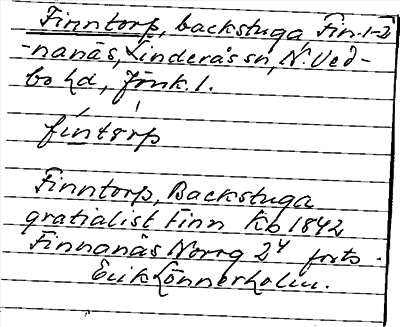 Finntorp, backstuga, Fin.1-2
-nanäs, Linderås sn, N. Ved-
bo hd, Jönk. l.
fintorp
Finntorp, Backstuga
gratialist Finn Kb 1842
Finnanäs Norrg 2 frts.
Erik Lönnerholm.